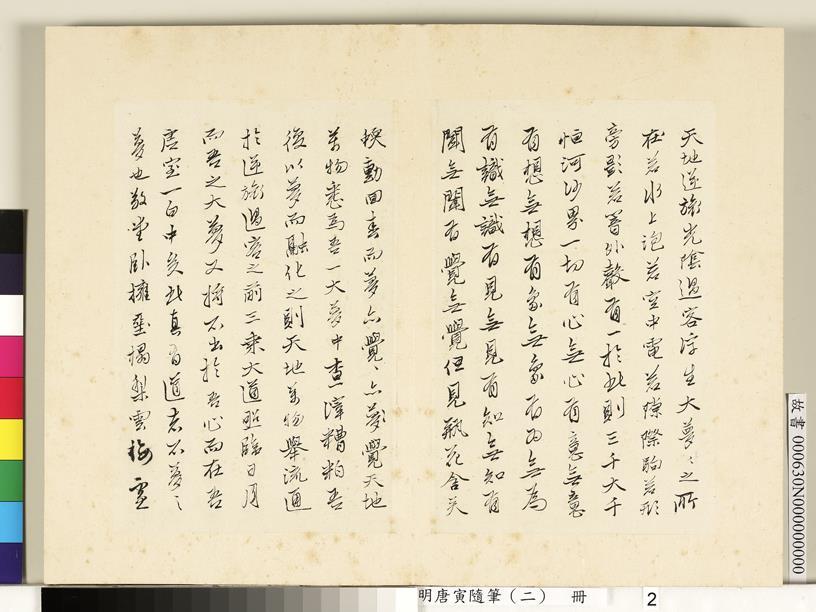 天地逆旅光陰過客浮生大夢〻之所
在若水上泡若空中電若隙際駒若形
旁影若響外聲有一於此則三千大千
恒河沙界一切有心無心有意無意
有想無想有象無象有為無為
有識無識有見無見有知無知有
聞無聞有覺無覺但見瓶花含笑
動回素而夢亦覺〻亦夢覺天地
萬物悉為吾一大夢中查滓糟粕吾
復以夢而融化之則天地萬物舉流通
於逆旅過客之前三乘大道照臨日月
而吾之大夢又將不出於吾心而在吾
唐室一白中矣此真有道者不夢〻
夢也敬堂臥擁 榻梨雲梅雪
故書 000630N000000000
明唐寅隨筆(二) 冊
2